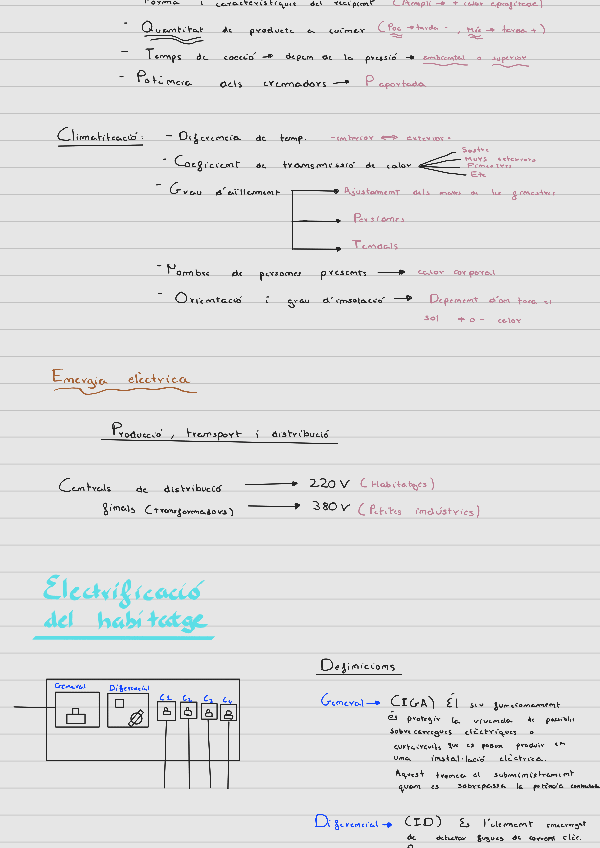 Forma i característiques del recipient (Ampli → + calor aprofitada)
- Quantitat de producte a cuinar (Poc → tarda -, Més → tarda +)
- Temps de cocció → depen de la pressió → ambiental o superior
- Potència dels cremadors → P aportada
Climatització: - Diferencia de temp. -interior ↔ exterior-
- Coeficient de transmissió de calor
Sostre
Murs exteriors
Finestres
Etc
- Grau d'aïllament
Ajustament dels marcs de les finestres
Persianes
Tendals
- Nombre de persones presents → calor corporal
- Orientació i grau d'insolació → Depenent d'on toca el
sol + o - calor
Energia elèctrica
Producció, transport i distribució
Centrals de distribució → 220V (Habitatges)
finals (transformadors) → 380V (Petites indústries)
Electrificació
del habitatge
Definicions
General Diferencial C1 C2 C3 C4
General → (IGA) És seu funcionament
és protegir la vivenda de possibles
sobrecarregues elèctriques o
curtcircuits que es poden produir en
una instal·lació elèctrica.
Aquest trenca el subministrament
quan es sobrepassa la potència contractada
Diferencial → (ID) És l'element encarregat
de detectar fugues de corrent elèc.